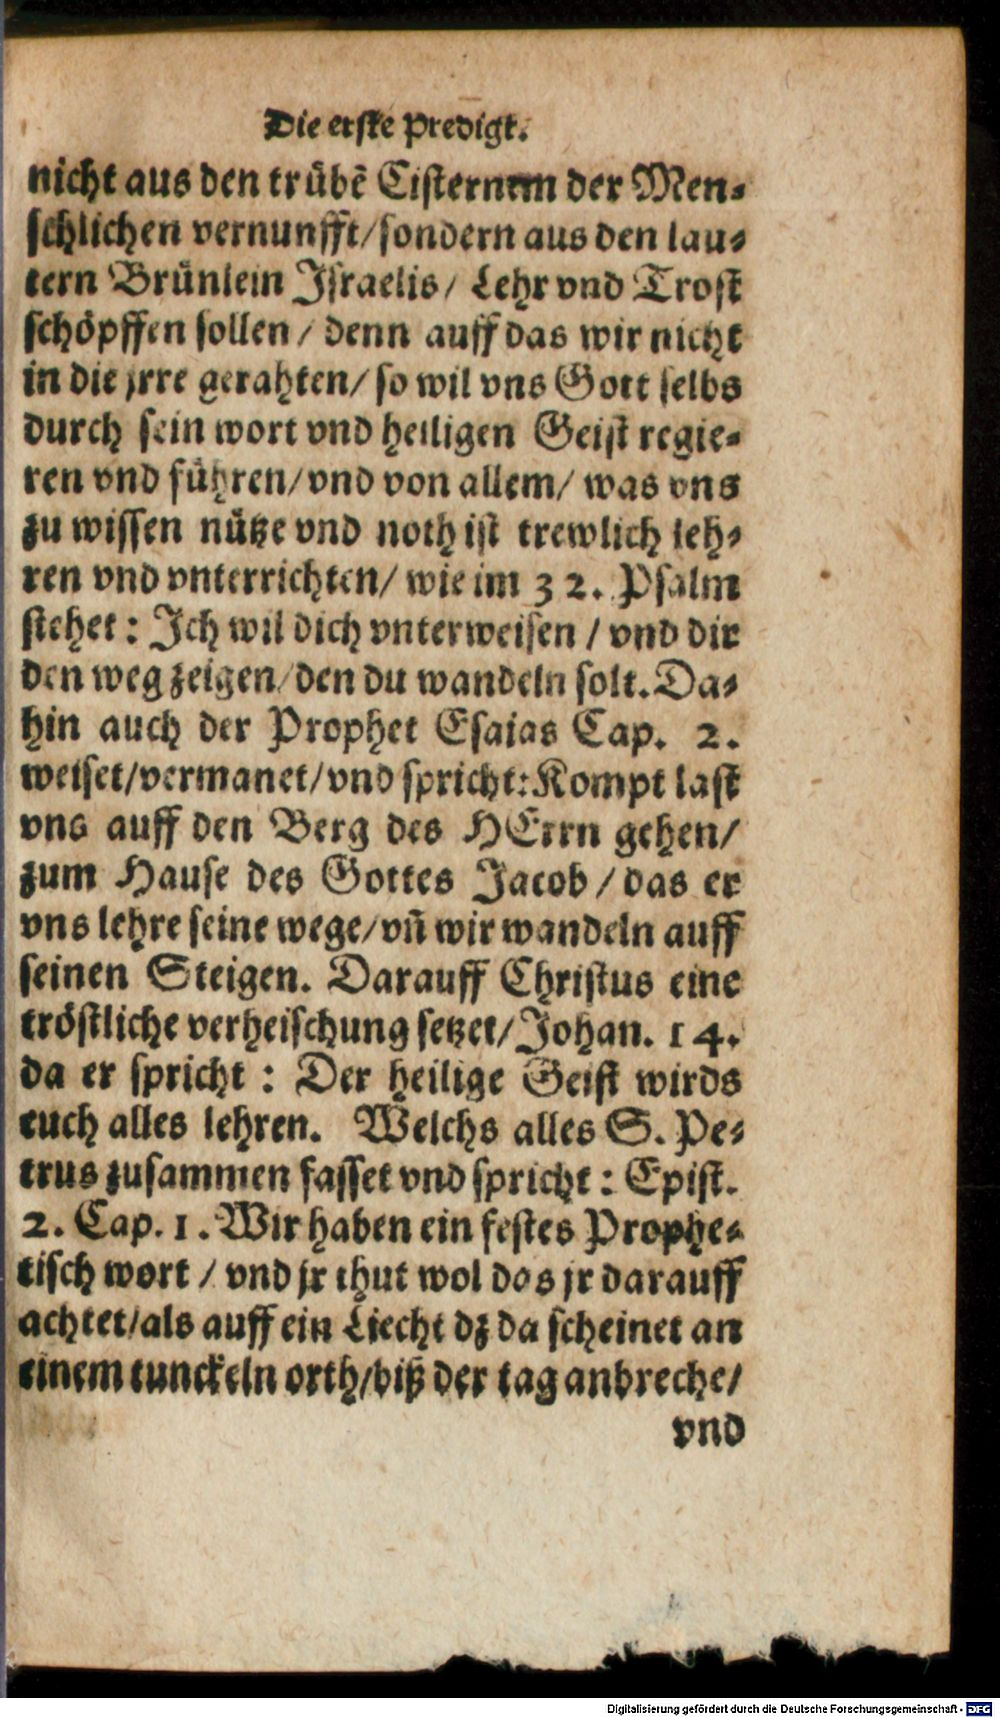 Die erste Predigt.
nicht aus den trübẽ Cisternem der Men-
schlichen vernunfft/sondern aus den lau-
tern Brünlein Israelis/ Lehr vnd Trost
schöpffen sollen / denn auff das wir nicht
in die jrre gerahten/ so wil vns Gott selbs
durch sein wort vnd heiligen Geist regie-
ren vnd führen/vnd von allem/ was vns
zu wissen nütze vnd noth ist trewlich leh-
ren vnd vnterrichten/ wie im 32. Psalm
stehet: Ich wil dich vnterweisen / vnd dir
den weg zeigen/den du wandeln solt. Da-
hin auch der Prophet Esaias Cap. 2.
weiset/vermanet/vnd spricht: Kompt last
vns auff den Berg des HErrn gehen/
zum Hause des Gottes Jacob / das er
vns lehre seine wege/vñ wir wandeln auff
seinen Steigen. Darauff Christus eine
tröstliche verheischung setzet/ Johan. 14.
da er spricht : Der heilige Geist wirds
euch alles lehren. Welchs alles S. Pe-
trus zusammen fasset vnd spricht : Epist.
2. Cap. 1. Wir haben ein festes Prophe-
tisch wort / vnd jr thut wol das jr darauff
achtet/als auff ein Liecht dz da scheinet an
einem tunckeln orth/biß der tag anbreche/
vnd
Digitalisierung gefördert durch die Deutsche Forschungsgemeinschaft - DFG